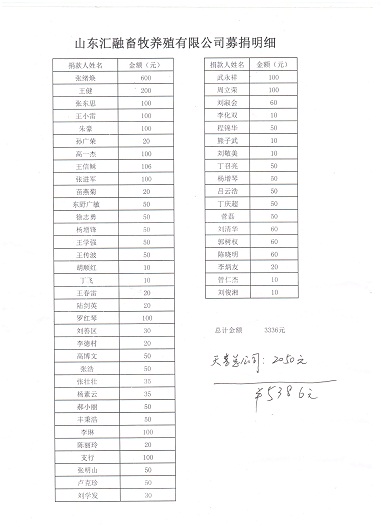 山东汇融畜牧养殖有限公司募捐明细
捐款人姓名 金额（元）
张绪焕 600
王健 200
张东思 100
王小雷 100
朱蒙 100
孙广荣 20
高一杰 100
王信娬 106
张进军 100
苗燕菊 20
东野广敏 50
徐志勇 50
杨增锋 50
王学强 50
王传波 50
胡顺红 10
丁飞 10
王春雷 20
陆剑英 20
罗红琴 100
刘善区 30
李德村 20
高博文 50
张浩 50
张壮壮 35
杨素云 35
郝小丽 50
丰秉浩 50
李琳 100
陈丽玲 20
支行 100
张明山 50
卢克珍 50
刘学发 30
捐款人姓名 金额（元）
武永祥 100
周立荣 100
刘淑会 60
李化双 10
程锦华 50
熊子武 10
刘敏美 10
丁召亮 50
杨增琴 50
吕云浩 50
丁庆超 50
曾磊 50
刘清华 60
郭树权 60
陈晓明 60
李炳友 20
管仁杰 10
刘俊湘 10
总计金额 3336元
公司：2050元
¥5386元